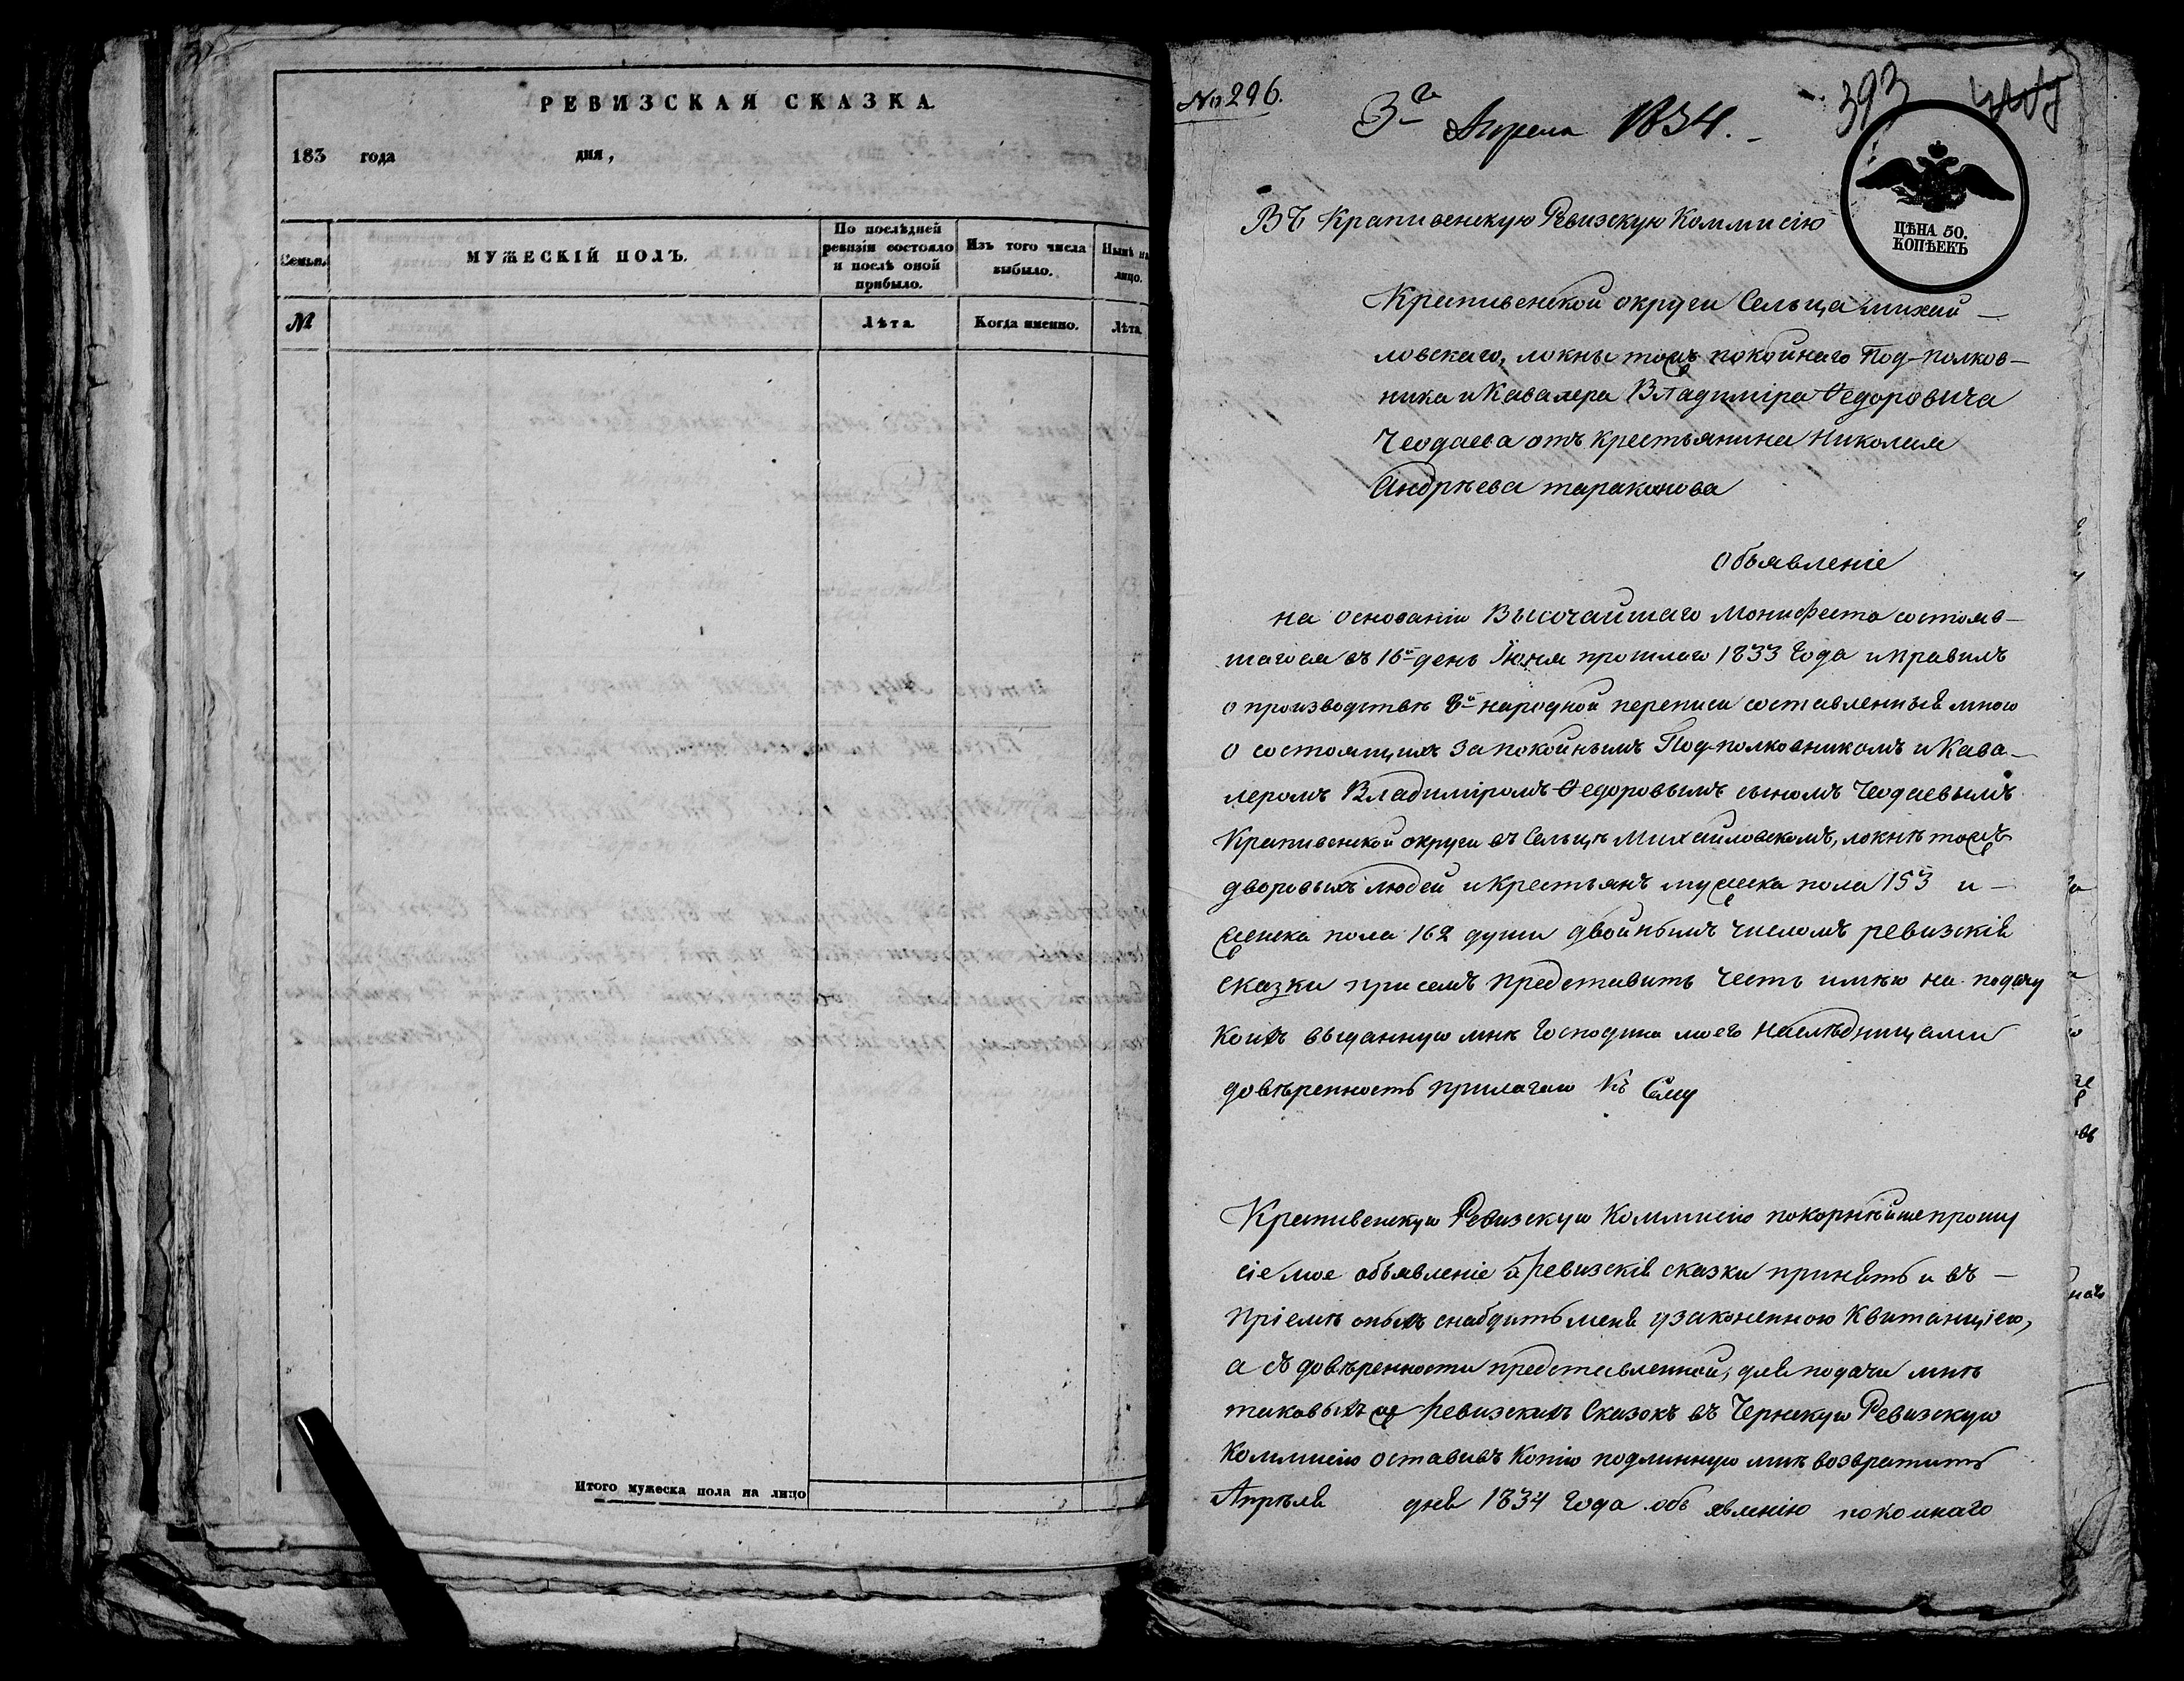 РЕВИЗСКАЯ СКАЗКА.
183 года дня,
Семьи.
МУЖЕСКІЙ ПОЛЪ.
По послѣдней
ревизіи состояло
и послѣ оной
прибыло.
Изъ того числа
выбыло.
Нынѣ на
лицо.
№
Лѣта.
Когда именно.
Лѣта.
Итого мужеска пола на лицо
№ 296.
3го Апреля 1834.
393
ЦѢНА 50.
КОПѢЕКЪ
Въ Крапивенскую Ревизскую Коммисію
Крапивенской округи Сельца михай-
ловскаго, локны тожъ покойнаго Под-полков-
ника и Кавалера Владиміра Ѳедоровича
Чеодаева отъ крестьянина Николая
Андрѣева тараканова
Объявленіе
на основаніи Высочайшаго Монифеста состояв-
шагося въ 16й день Іюня прошлаго 1833 Года и правилъ
о производствѣ 8й народной переписи составленныя мною
о состоящихъ за покойнымъ Под-полковникомъ и Кава-
леромъ Владиміромъ Ѳедоровымъ сыномъ Чеодаевымъ
Крапивенской округи въ Сельцѣ Михайловскомъ, локнѣ тожъ
дворовыхъ людей и крестьянъ мужеска пола 153 и-
женска пола 162 души двойнымъ числомъ ревизскія
сказки при семъ представить честь имѣю на подачу
коихъ выданную мнѣ Господина моего наслѣдницами
довѣренность прилагаю Къ Сему
Крапивенскую Ревизскую Коммисію покорнѣйше прошу
сіе мое объявленіе и ревизскія сказки принять и въ-
пріемѣ оныхъ снабдить меня узаконенною Квитанціею,
а съ довѣренности представленной, для подачи мнѣ
таковыхъ же ревизскихъ Сказокъ въ Чернскую Ревизскую
Коммисію оставивъ Копію подлинную мнѣ возвратить
Апрѣля дня 1834 Года объявленію покойнаго